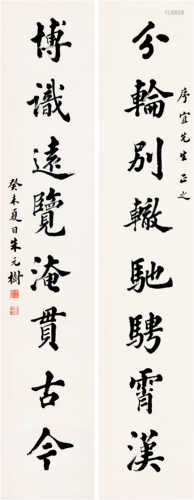 序宜先生正之
分輪別轍馳騁霄漢
博識遠覽淹貫古今
癸未夏日朱元樹